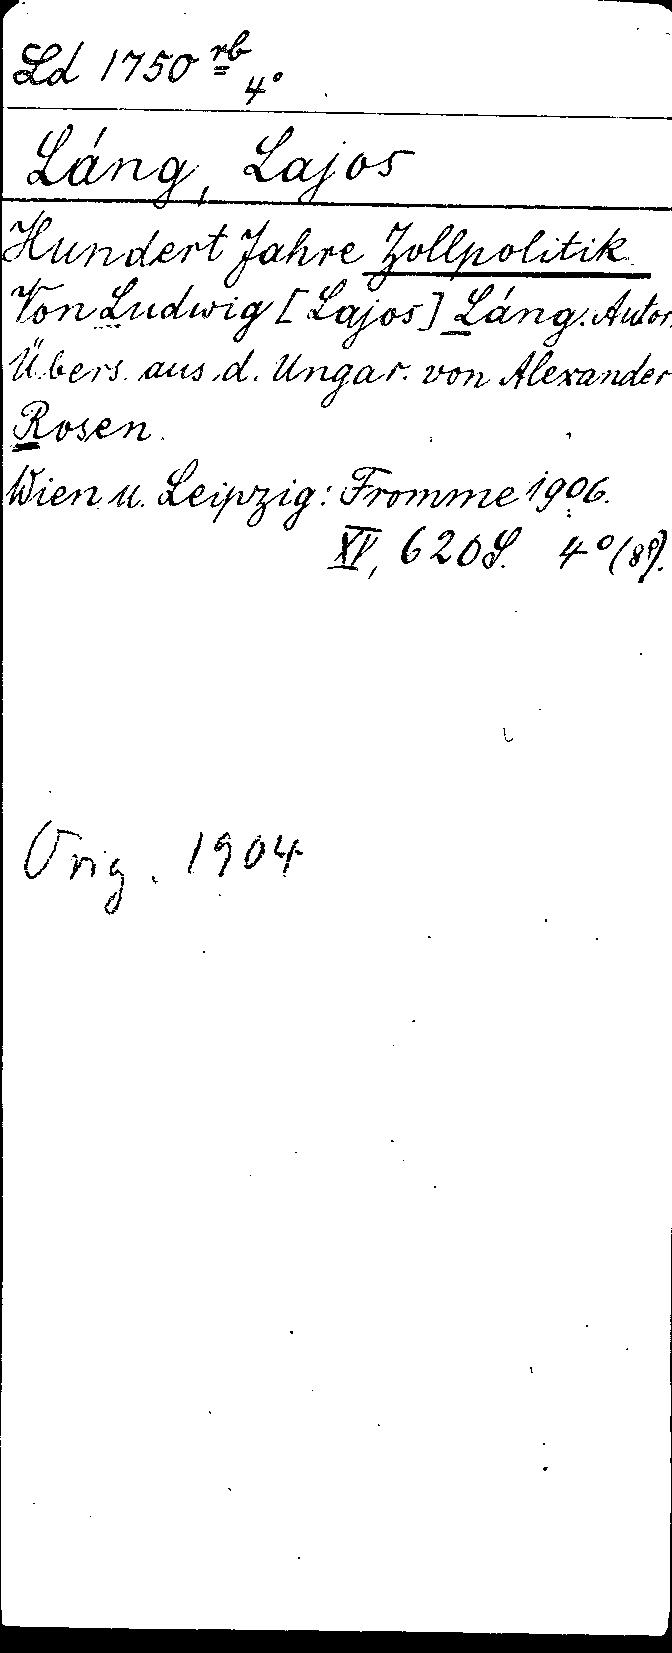 Ld 1750 rb 4°
Láng, Lajos
Hundert Jahre Zollpolitik
Von Ludwig [Lajos] Láng. Autor.
Übers. aus d. Ungar. von Alexander
Rosen.
Wien u. Leipzig: Fromme 1906.
XV, 620 S. 4° (8°).
Orig. 1904